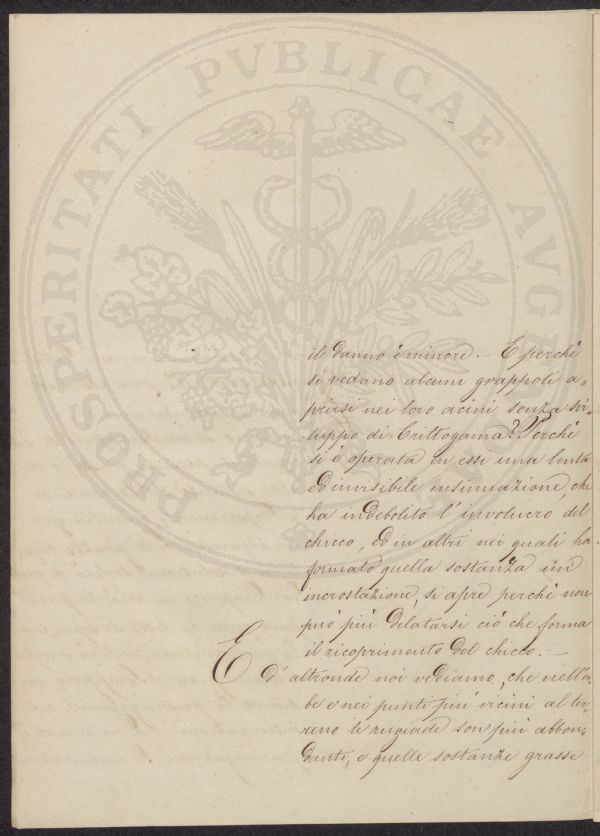 PROSPERITATI PVBLICAE AVGE
il danno è minore. - E perchè
si vedano alcuni grappoli a-
prirsi nei loro acini senza svi-
luppo di Crittogama? Perchè
si è operata in essi una lenta
ed invisibile insinuazione, che
ha indebolito l'involucro del
chicco, ed in altri nei quali ha
formato quella sostanza un'
incrostazione, si apre perchè non
può più dilatarsi ciò che forma
il ricoprimento del chicco. -
E d'altronde noi vediamo, che nell'er-
be e nei punti più vicini al ter-
reno le rugiade son più abbon-
danti, e quelle sostanze grasse